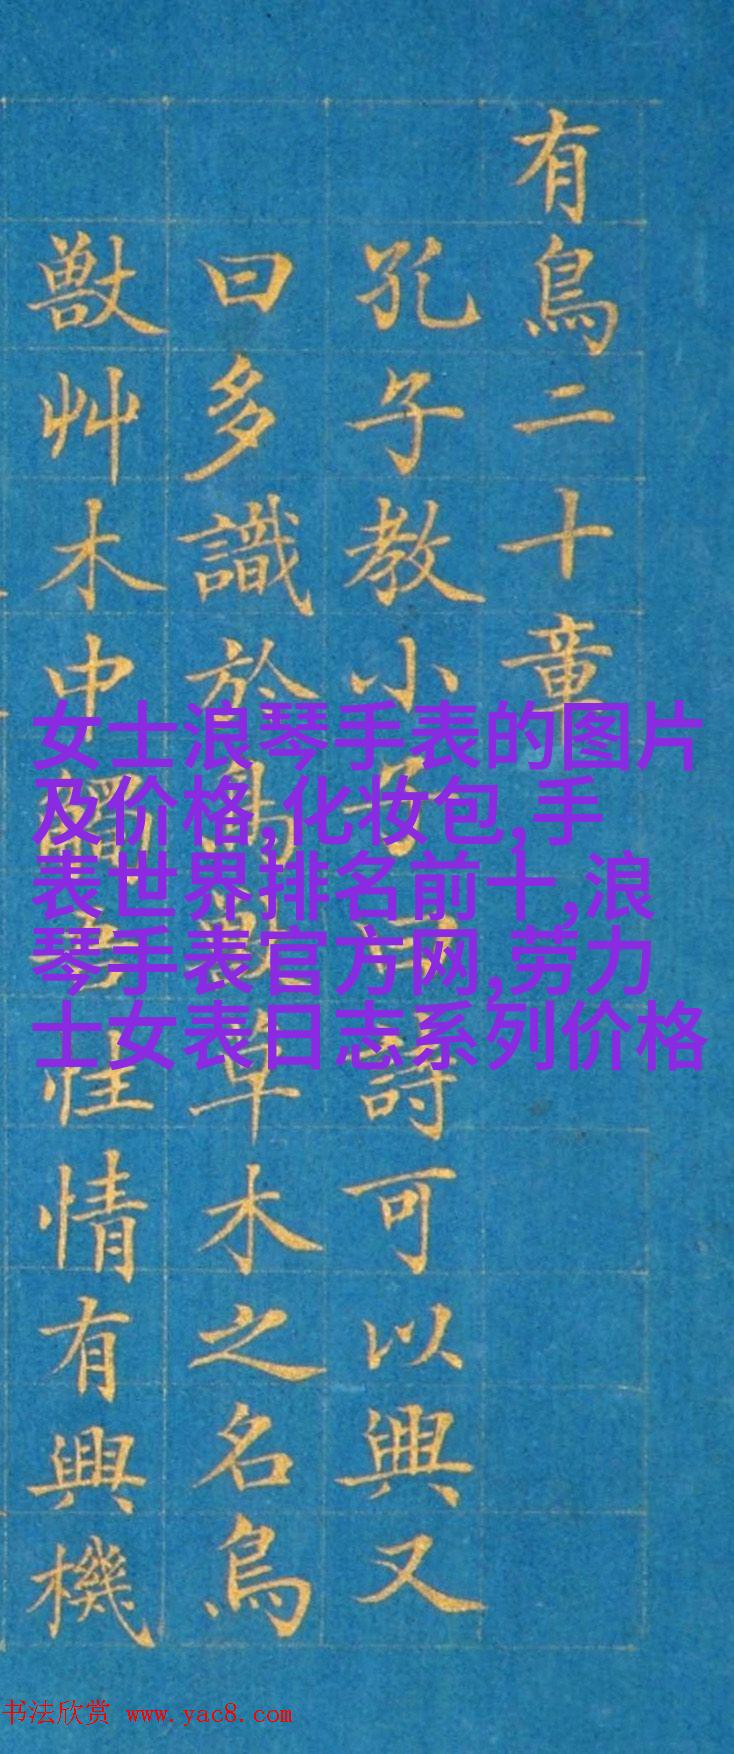 有鳥二十章
孔子教小子詩可以興又
曰多識於鳥獸草木之名鳥
獸艸木中觸性情有興機
女士浪琴手表的图片
及价格,化妆包,手
表世界排名前十,浪
琴手表官方网,劳力
士女表日志系列价格
书法欣赏 www.yac8.com